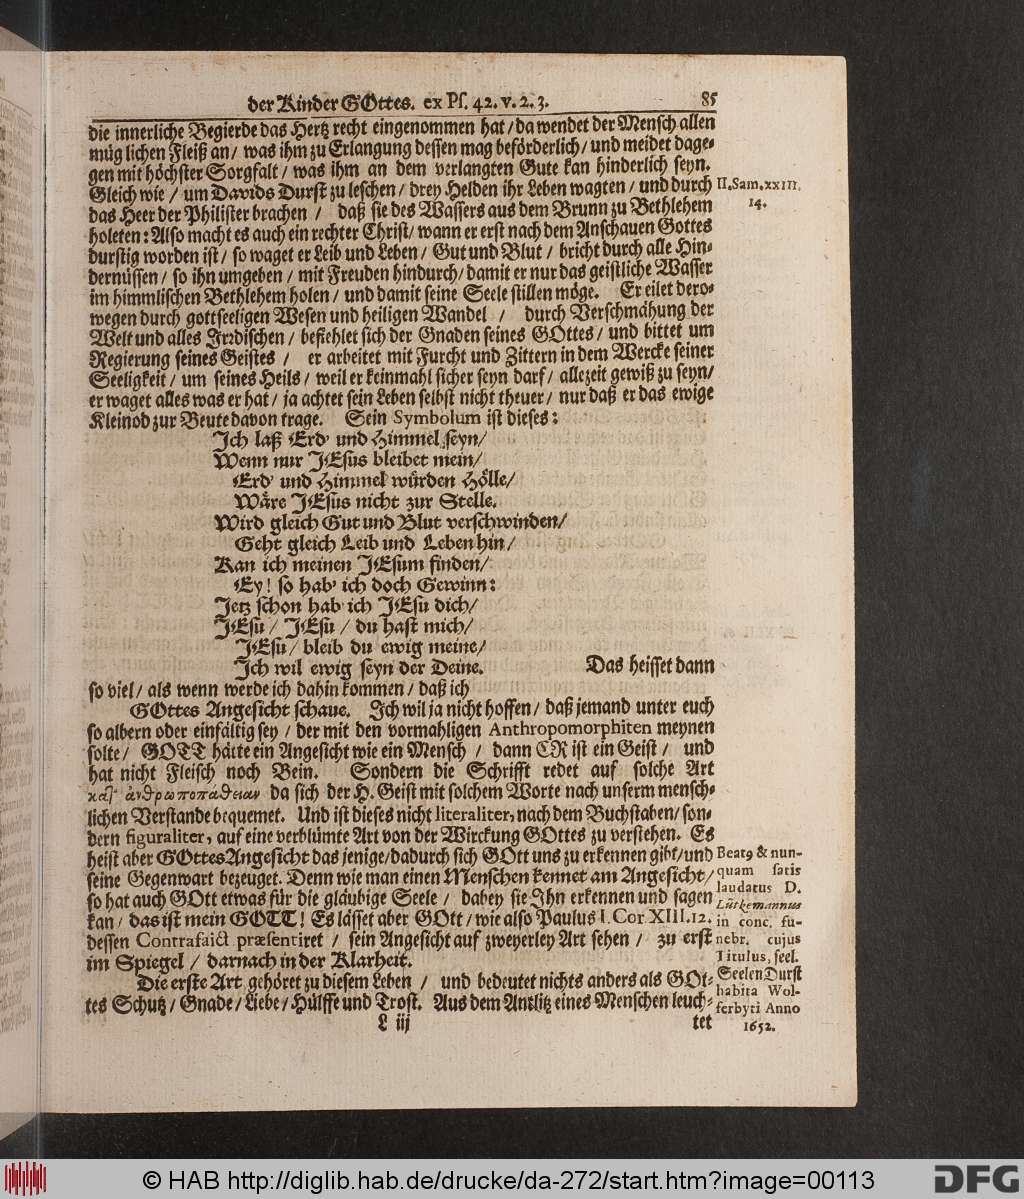 der Kinder GOttes. ex Ps. 42. v. 2. 3. 85
die innerliche Begierde das Hertz recht eingenommen hat / da wendet der Mensch allen
müglichen Fleiß an / was ihm zu Erlangung dessen mag beförderlich / und meidet dage-
gen mit höchster Sorgfalt / was ihm an dem verlangten Gute kan hinderlich seyn.
Gleich wie / um Davids Durst zu leschen / drey Helden ihr Leben wagten / und durch
II. Sam. XXIII.
14.
das Heer der Philister brachen / daß sie des Wassers aus dem Brunn zu Bethlehem
holeten: Also macht es auch ein rechter Christ / wann er erst nach dem Anschauen Gottes
durstig worden ist / so waget er Leib und Leben / Gut und Blut / bricht durch alle Hin-
dernüssen / so ihn umgeben / mit Freuden hindurch / damit er nur das geistliche Wasser
im himmlischen Bethlehem holen / und damit seine Seele stillen möge. Er eilet dero-
wegen durch gottseeligen Wesen und heiligen Wandel / durch Verschmähung der
Welt und alles Irrdischen / befiehlet sich der Gnaden seines GOttes / und bittet um
Regierung seines Geistes / er arbeitet mit Furcht und Zittern in dem Wercke seiner
Seeligkeit / um seines Heils / weil er keinmahl sicher seyn darf / allezeit gewiß zu seyn /
er waget alles was er hat / ja achtet sein Leben selbst nicht theuer / nur daß er das ewige
Kleinod zur Beute davon trage. Sein Symbolum ist dieses:
Ich laß Erd' und Himmel seyn /
Wenn nur JEsus bleibet mein /
Erd' und Himmel würden Hölle /
Wäre JEsus nicht zur Stelle.
Wird gleich Gut und Blut verschwinden /
Geht gleich Leib und Leben hin /
Kan ich meinen JEsum finden /
Ey! so hab' ich doch Gewinn:
Jetz schon hab ich JEsu dich /
JEsu / JEsu / du hast mich /
JEsu / bleib du ewig meine /
Ich wil ewig seyn der Deine. Das heisset dann
so viel / als wenn werde ich dahin kommen / daß ich
GOttes Angesicht schaue. Ich wil ja nicht hoffen / daß jemand unter euch
so albern oder einfältig sey / der mit den vormahligen Anthropomorphiten meynen
solte / GOTT hätte ein Angesicht wie ein Mensch / dann ER ist ein Geist / und
hat nicht Fleisch noch Bein. Sondern die Schrifft redet auf solche Art
κατ' ἀνθρωποπάθειαν da sich der H. Geist mit solchem Worte nach unserm mensch-
lichen Verstande bequemet. Und ist dieses nicht literaliter, nach dem Buchstaben / son-
dern figuraliter, auf eine verblümte Art von der Wirckung GOttes zu verstehen. Es
heist aber GOttes Angesicht das jenige / dadurch sich GOtt uns zu erkennen gibt / und
seine Gegenwart bezeuget. Denn wie man einen Menschen kennet am Angesicht /
so hat auch GOtt etwas für die gläubige Seele / dabey sie Ihn erkennen und sagen
kan / das ist mein GOTT! Es lässet aber GOtt / wie also Paulus I. Cor XIII. 12.
dessen Contrafaict præsentiret / sein Angesicht auf zweyerley Art sehen / zu erst
im Spiegel / darnach in der Klarheit.
Die erste Art gehöret zu diesem Leben / und bedeutet nichts anders als GOt-
tes Schutz / Gnade / Liebe / Hülffe und Trost. Aus dem Antlitz eines Menschen leuch-
Beatꝰ & nun-
quam satis
laudatus D.
Lütkemannus
in conc. fu-
nebr. cujus
Titulus, seel.
Seelen Durst
habita Wol-
ferbyti Anno
1652.
L iij tet
© HAB http://diglib.hab.de/drucke/da-272/start.htm?image=00113
DFG